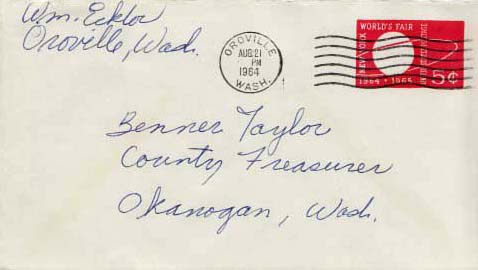 Wm. Ecklor
Oroville, Wash.
OROVILLE
AUG 21
PM
1964
WASH.
WORLD'S FAIR
NEW YORK
1964 - 1965
5¢
Benner Taylor
County Treasurer
Okanogan, Wash.